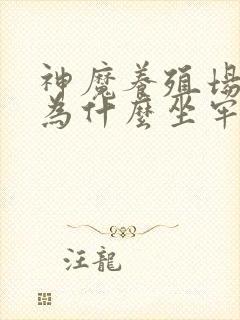 神魔養殖場
為什麼坐牢
汪龍